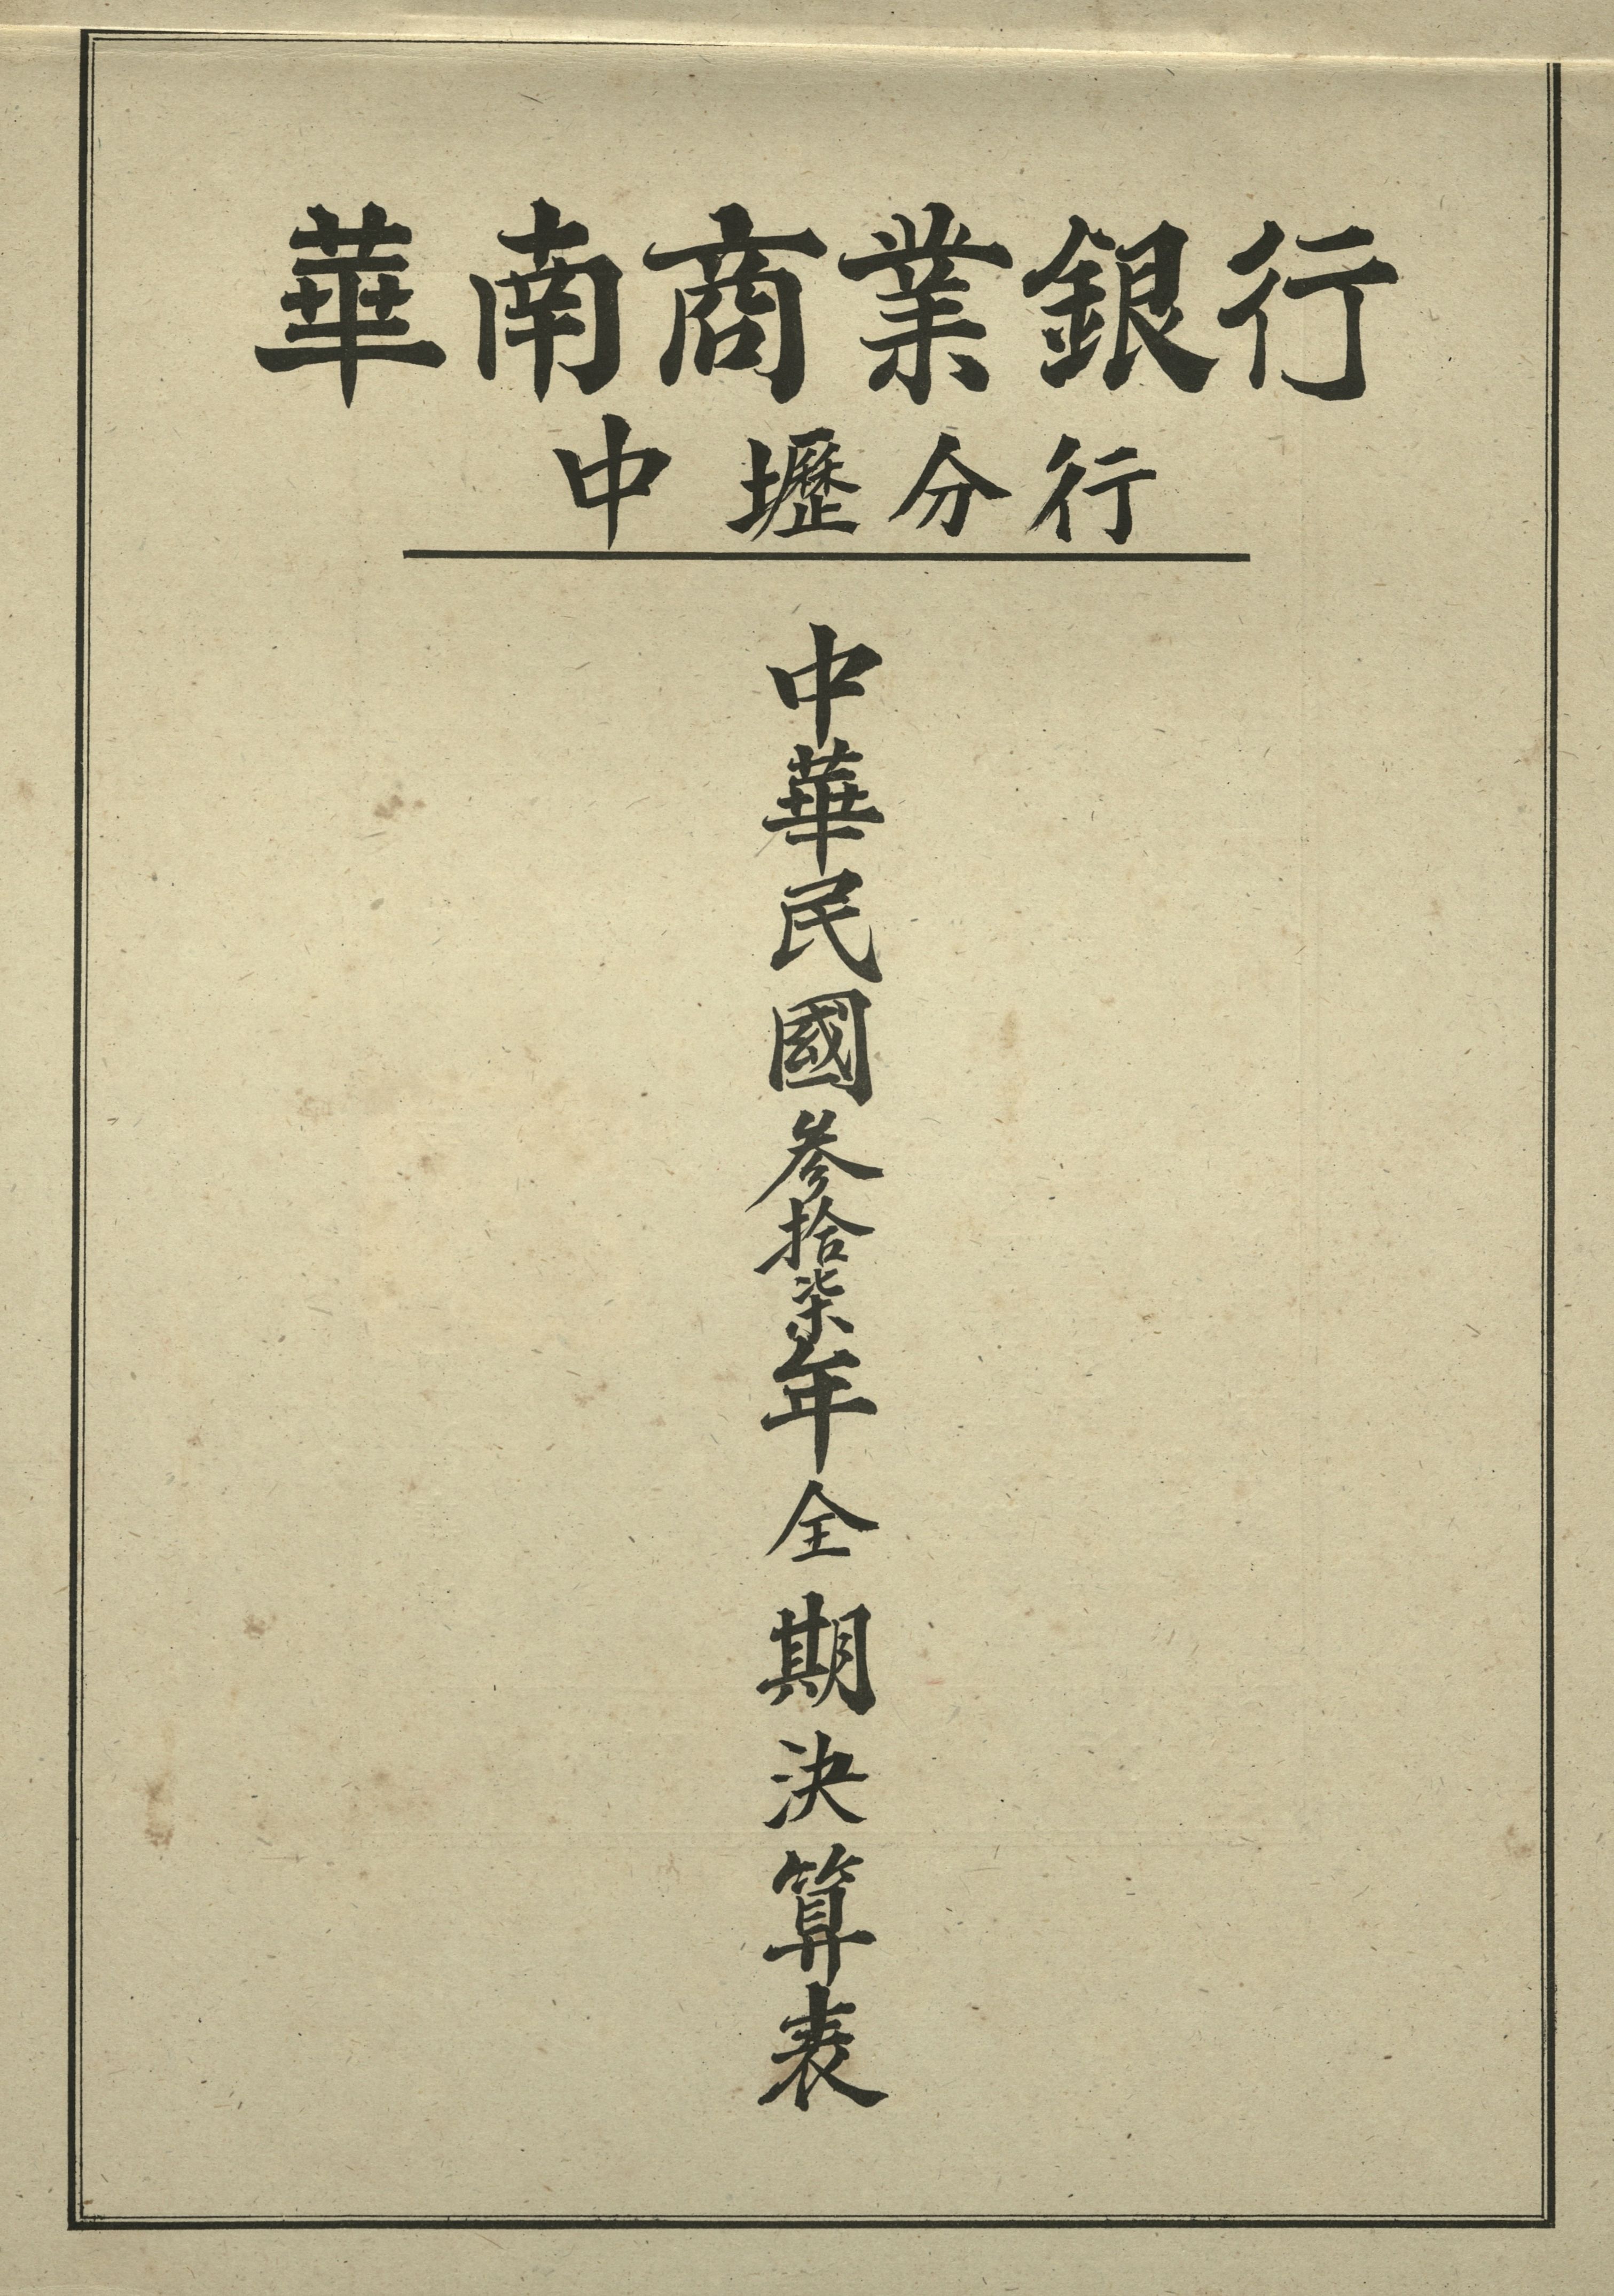 華南商業銀行
中壢分行
中華民國叁拾柒年全期決算表